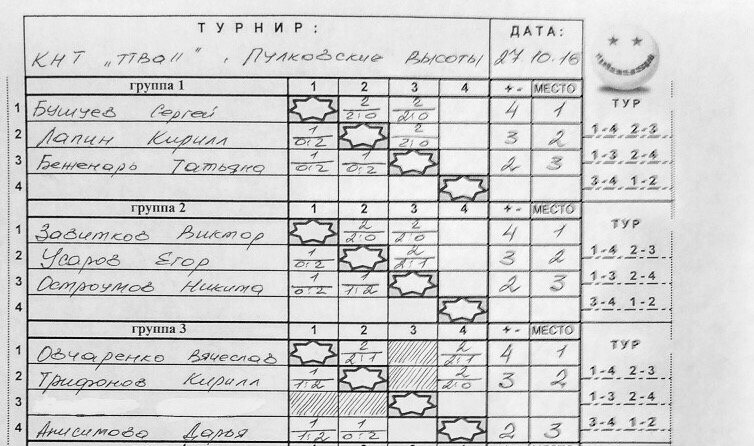 ТУРНИР: ДАТА:
КНТ „ПВО", Пулковские Высоты 27.10.16
группа 1 1 2 3 4 + - МЕСТО ТУР
1 Бушуев Сергей 2 2:0 2 2:0 4 1
2 Лапин Кирилл 1 0:2 2 2:0 3 2 1-4 2-3
3 Беженарь Татьяна 1 0:2 1 0:2 2 3 1-3 2-4
4 3-4 1-2
группа 2 1 2 3 4 + - МЕСТО
1 Завитков Виктор 2 2:0 2 2:0 4 1 ТУР
2 Усаров Егор 1 0:2 2 2:1 3 2 1-4 2-3
3 Остроумов Никита 1 0:2 1 1:2 2 3 1-3 2-4
4 3-4 1-2
группа 3 1 2 3 4 + - МЕСТО
1 Овчаренко Вячеслав 2 2:1 2 2:1 4 1 ТУР
2 Трифонов Кирилл 1 1:2 2 2:0 3 2 1-4 2-3
3 1-3 2-4
4 Анисимова Дарья 1 1:2 1 0:2 2 3 3-4 1-2